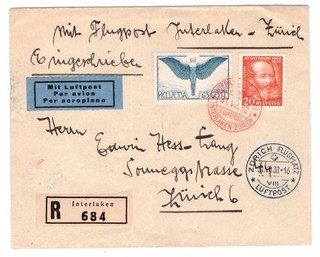 Mit Flugpost Interlaken - Zürich
Eingeschrieben
Mit Luftpost
Par avion
Per aeroplano
HELVETIA 65
20 HELVETIA
INTERLAKEN-ZÜRICH
Herrn
Edwin Hess-
Sonneggstrasse
Zürich 6
ZÜRICH FLUGPLATZ
VIII
LUFTPOST
R
Interlaken
684